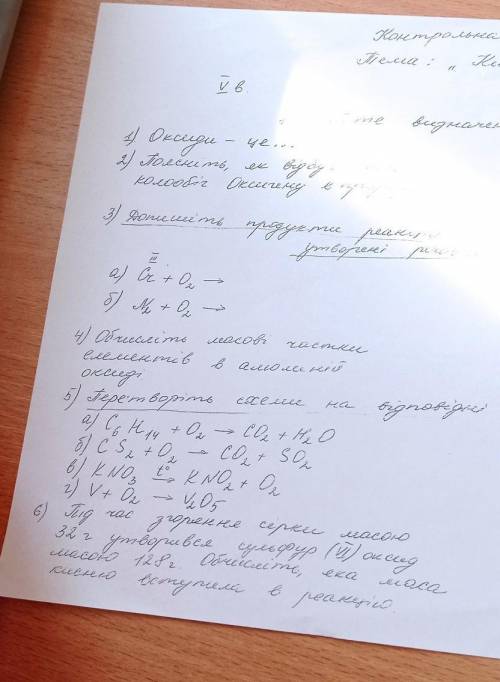 Контрольна
Тема: „
V в.
визначен
1) Оксиди – це...
2) Поясніть, як відбу
колообіг Оксигену в
3) Допишіть продукти реакції
утворені
III
а) Cr + O₂ →
б) N₂ + O₂ →
4) Обчисліть масові частки
елементів в алюміній
оксиді.
5) Перетворіть схеми на відповідні
а) C₆H₁₄ + O₂ → CO₂ + H₂O
б) CS₂ + O₂ → CO₂ + SO₂
в) KNO₃ t°→ KNO₂ + O₂
г) V + O₂ → V₂O₅
6) Під час згорення сірки масою
32 г утворився сульфур (VI) оксид
масою 128 г. Обчисліть, яка маса
кисню вступила в реакцію.